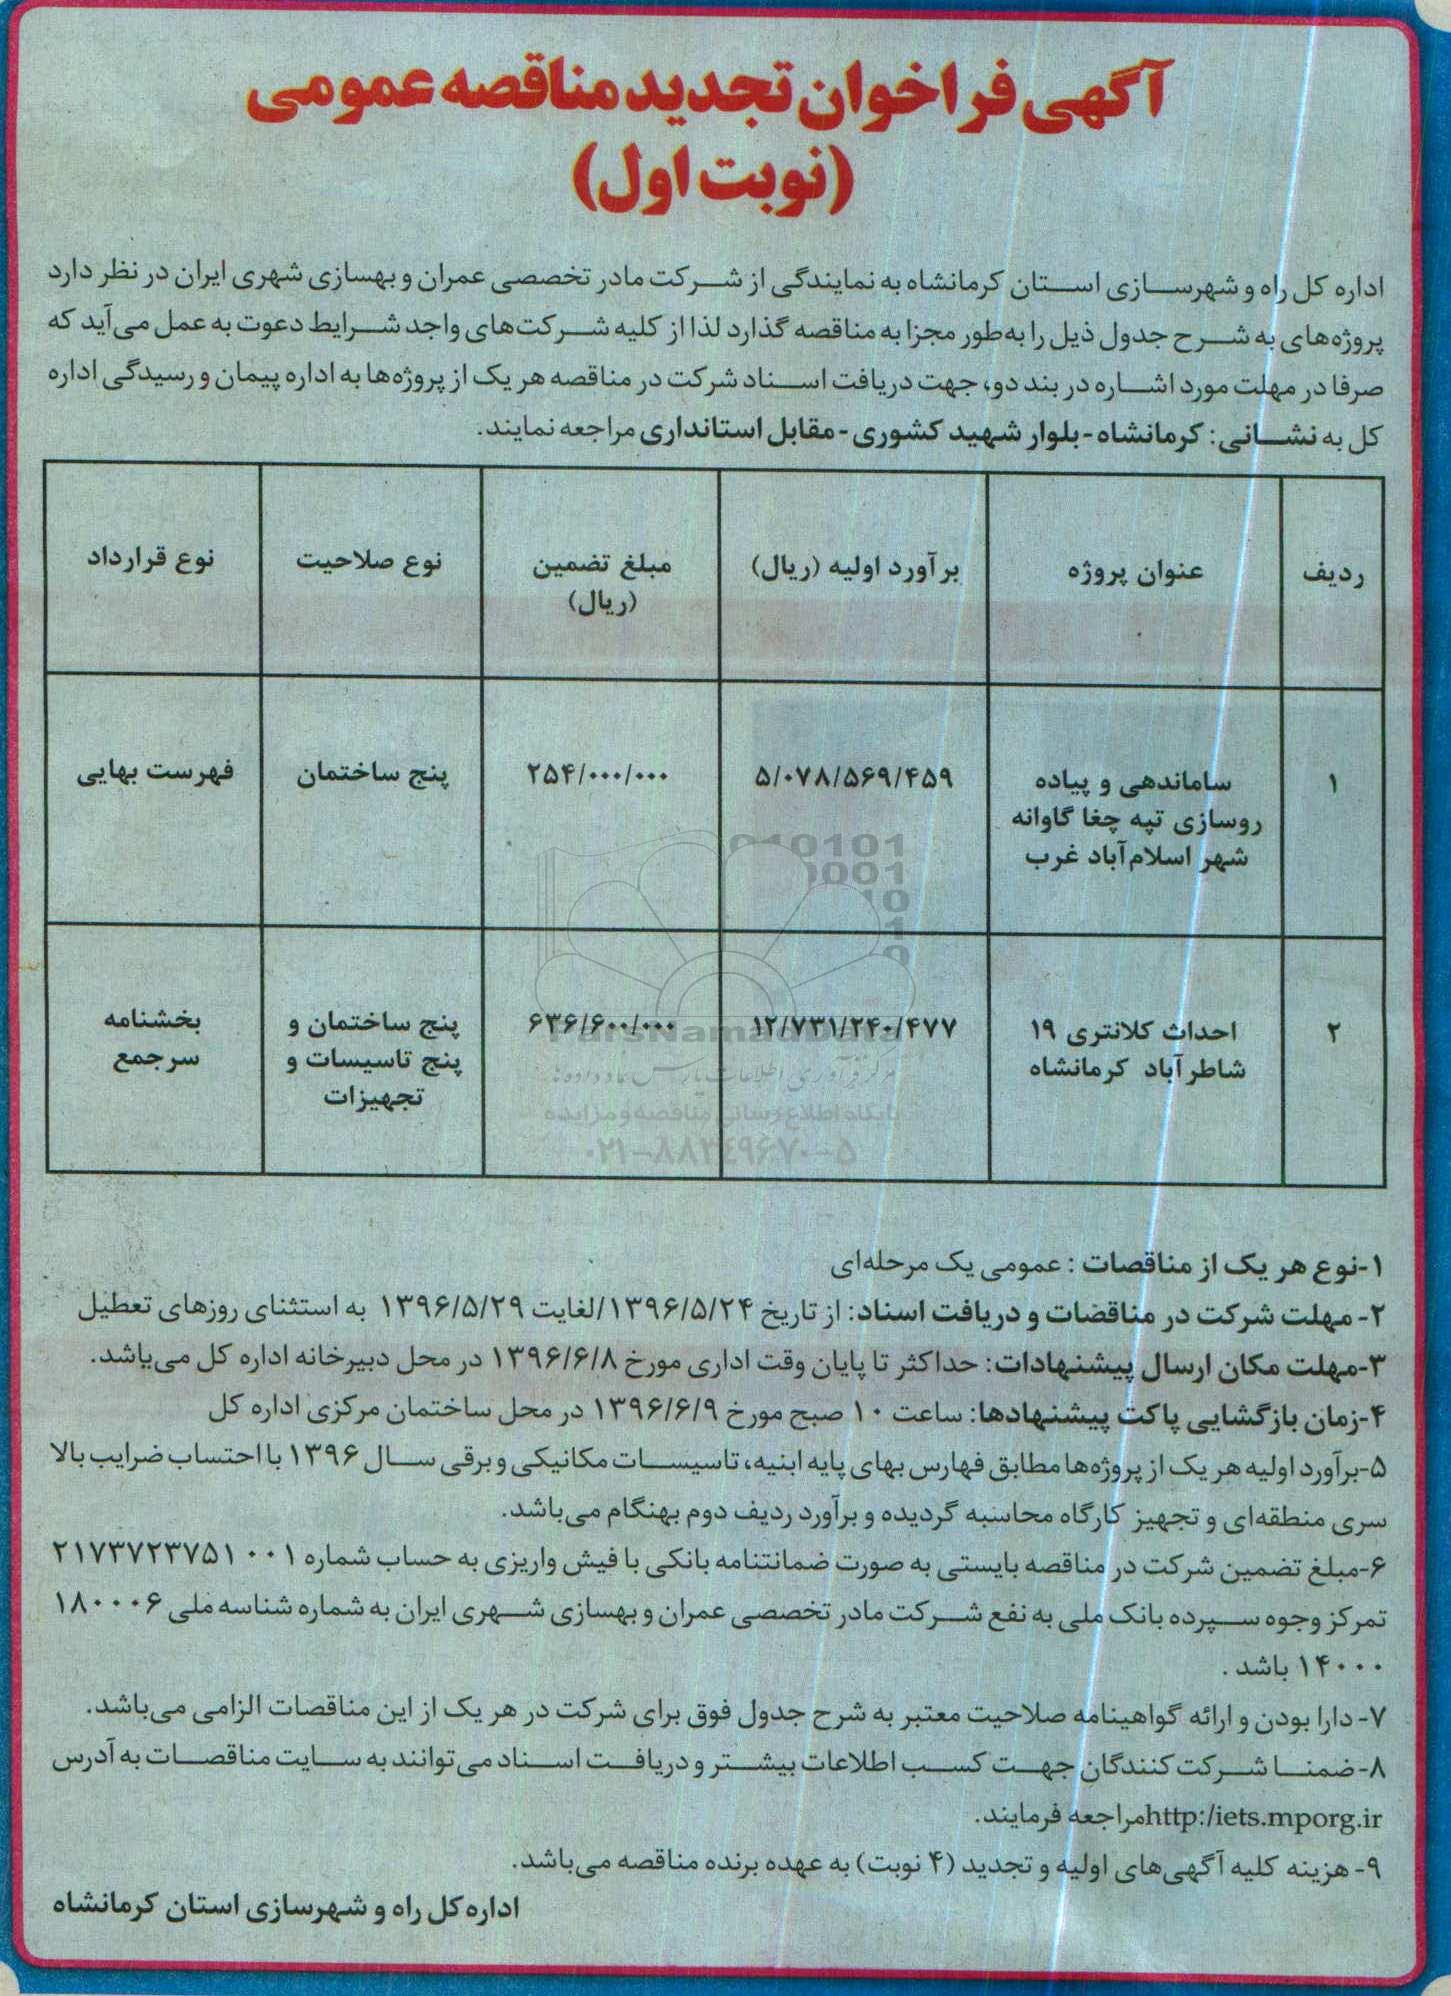 آگهی فراخوان تجدید مناقصه عمومی
(نوبت اول)
اداره کل راه و شهرسازی استان کرمانشاه به نمایندگی از شرکت مادر تخصصی عمران و بهسازی شهری ایران در نظر دارد
پروژه‌های به شرح جدول ذیل را به‌طور مجزا به مناقصه گذارد لذا از کلیه شرکت‌های واجد شرایط دعوت به عمل می‌آید که
صرفا در مهلت مورد اشاره در بند دو، جهت دریافت اسناد شرکت در مناقصه هر یک از پروژه‌ها به اداره پیمان و رسیدگی اداره
کل به نشانی: کرمانشاه - بلوار شهید کشوری - مقابل استانداری مراجعه نمایند.
ردیف
عنوان پروژه
برآورد اولیه (ریال)
مبلغ تضمین
(ریال)
نوع صلاحیت
نوع قرارداد
۱
ساماندهی و پیاده
روسازی تپه چغا گاوانه
شهر اسلام‌آباد غرب
۵/۰۷۸/۵۶۹/۴۵۹
۲۵۴/۰۰۰/۰۰۰
پنج ساختمان
فهرست بهایی
۲
احداث کلانتری ۱۹
شاطرآباد کرمانشاه
۱۲/۷۳۱/۲۴۰/۴۷۷
۶۳۶/۶۰۰/۰۰۰
پنج ساختمان و
پنج تاسیسات و
تجهیزات
بخشنامه
سرجمع
ParsNamadData
مرکز فرآوری اطلاعات پارس نماد داده‌ها
پایگاه اطلاع رسانی مناقصه و مزایده
۰۲۱-۸۸۳۴۹۶۷۰-۵
۱-نوع هر یک از مناقصات : عمومی یک مرحله‌ای
۲- مهلت شرکت در مناقصات و دریافت اسناد: از تاریخ ۱۳۹۶/۵/۲۴/لغایت ۱۳۹۶/۵/۲۹ به استثنای روزهای تعطیل
۳-مهلت مکان ارسال پیشنهادات: حداکثر تا پایان وقت اداری مورخ ۱۳۹۶/۶/۸ در محل دبیرخانه اداره کل می‌باشد.
۴-زمان بازگشایی پاکت پیشنهادها: ساعت ۱۰ صبح مورخ ۱۳۹۶/۶/۹ در محل ساختمان مرکزی اداره کل
۵-برآورد اولیه هر یک از پروژه‌ها مطابق فهارس بهای پایه ابنیه، تاسیسات مکانیکی و برقی سال ۱۳۹۶ با احتساب ضرایب بالا
سری منطقه‌ای و تجهیز کارگاه محاسبه گردیده و برآورد ردیف دوم بهنگام می‌باشد.
۶-مبلغ تضمین شرکت در مناقصه بایستی به صورت ضمانتنامه بانکی با فیش واریزی به حساب شماره ۲۱۷۳۷۲۳۷۵۱۰۰۱
تمرکز وجوه سپرده بانک ملی به نفع شرکت مادر تخصصی عمران و بهسازی شهری ایران به شماره شناسه ملی ۱۸۰۰۰۶
۱۴۰۰۰ باشد .
۷- دارا بودن و ارائه گواهینامه صلاحیت معتبر به شرح جدول فوق برای شرکت در هر یک از این مناقصات الزامی می‌باشد.
۸- ضمنا شرکت کنندگان جهت کسب اطلاعات بیشتر و دریافت اسناد می‌توانند به سایت مناقصات به آدرس
http:/iets.mporg.irمراجعه فرمایند.
۹- هزینه کلیه آگهی‌های اولیه و تجدید (۴ نوبت) به عهده برنده مناقصه می‌باشد.
اداره‌کل راه و شهرسازی استان کرمانشاه